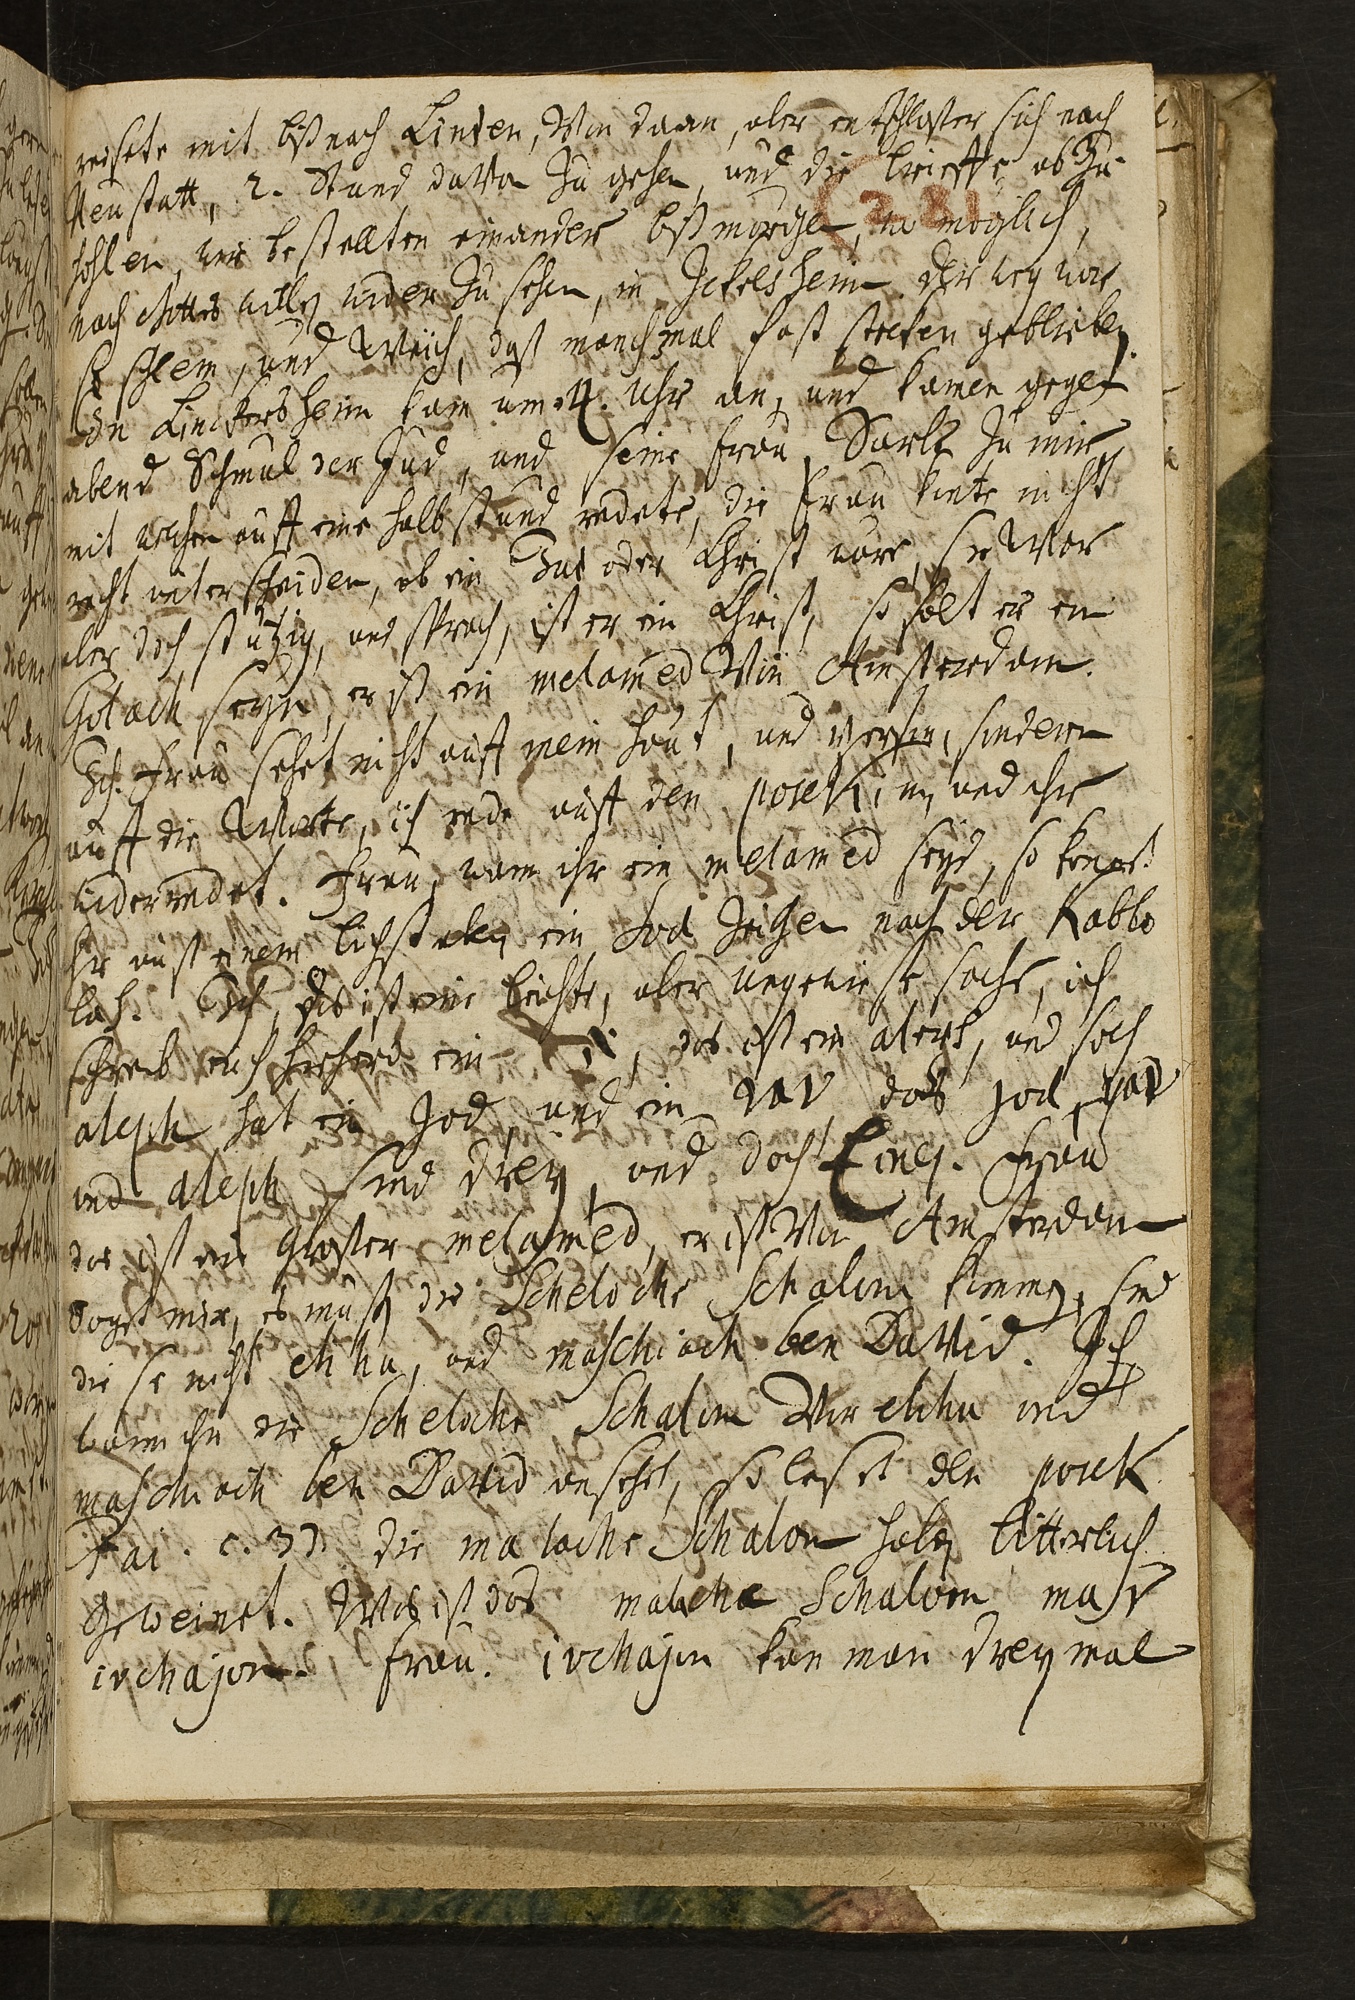 reisete mit biß nach Linden, Von dann, aber entschloßen sich nach
Neustatt, 2. Stund davon zu gehen, und die brieffe ab zu
hohlen, wir bestellten einander biß morgen, wo moglich,
nach Gottes willen wider zu sehen, in Ickelsheim. der weg war
so schlim, und Weich, daß manchmal fast stecken geblieben.
In Linckersheim kam um 4. Uhr an, und kamen gegen
abend Schmul der Jud, und seine frau, Sarle zu mir,
mit welchen auff eine halb stund redete, die Frau konte nicht
recht unterscheiden, ob ein Jud oder Christ wäre, sie War
aber doch stutzig, und sprach, ist er ein Christ, so solt er ein
Golach seyn, er ist ein melamed Von Amsterdam.
Ich. Frau sehet nicht auff mein haut, und person, sondern
auff die Worte, ich rede auff den posuk, und ihr
widerredet. Frau, wann ihr ein melamed seyd, so konnet
ihr auff einem buchstaben ein Sod zeigen nach der Kabbo
lah. Ich, das ist eine leichte, aber ungewiße sache, ich
schreib euch hieher ein א, das ist ein aleph, und solch
aleph hat ein Jod, und ein vav, das jod, vav
und aleph sind drey, und doch Eines. Frau
das ist ein großer melamed, er ist Von Amsterdam
Saget mir, es muß die Scheloche Schalom kommen, sind
diese nicht elihu, und maschiach ben David. Ich
wann ihr die Scheloche Schalom Vor elihu und
maschiach ben David ansehet, so leset den posuk
Isai. c. 33. die maloche Schalom haben bitterlich
Geweinet. Was ist das maloche Schalom mar
ivchajon. Frau. ivchajon kan man drey mal
(281